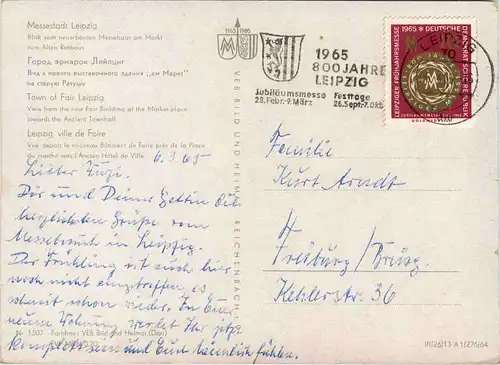 Messestadt Leipzig
Blick vom neuerbauten Messehaus am Markt
zum Alten Rathaus
Город ярмарок Лейпциг
Вид с нового выставочного здания „ам Маркт"
на старую Ратушу
Town of Fair Leipzig
View from the new Fair Building at the Market-place
towards the Ancient Townhall
Leipzig ville de Foire
Vue depuis le nouveau Bâtiment de Foire près de la Place
du marché vers l'Ancien Hôtel de Ville
6.3.65
Lieber
Dir und Deiner Gattin die
herzlichsten Grüße vom
Messebesuch in Leipzig.
Der Frühling ist auch hier
noch nicht eingetroffen, es
schneit schon wieder. In Eurer
neuen Wohnung werdet Ihr jetzt
komplett sein und Euch heimlich fühlen.
Nr. 1507 Farbfoto: VEB Bild und Heimat (Darr)
VEB BILD UND HEIMAT REICHENBACH
1165 1965
MM
1965
800 JAHRE
LEIPZIG
Jubiläumsmesse Festtage
28.Febr.-9.März 26.Sept.-9.Okt.
LEIPZIG
10
1965 DEUTSCHE DEMOKRATISCHE REPUBLIK
LEIPZIGER FRÜHJAHRSMESSE
JUBILÄUMSMESSE
Familie
Kurt Arndt
Freiburg/Brsg.
Kehlerstr. 36
III/26/13 A 1/276/64